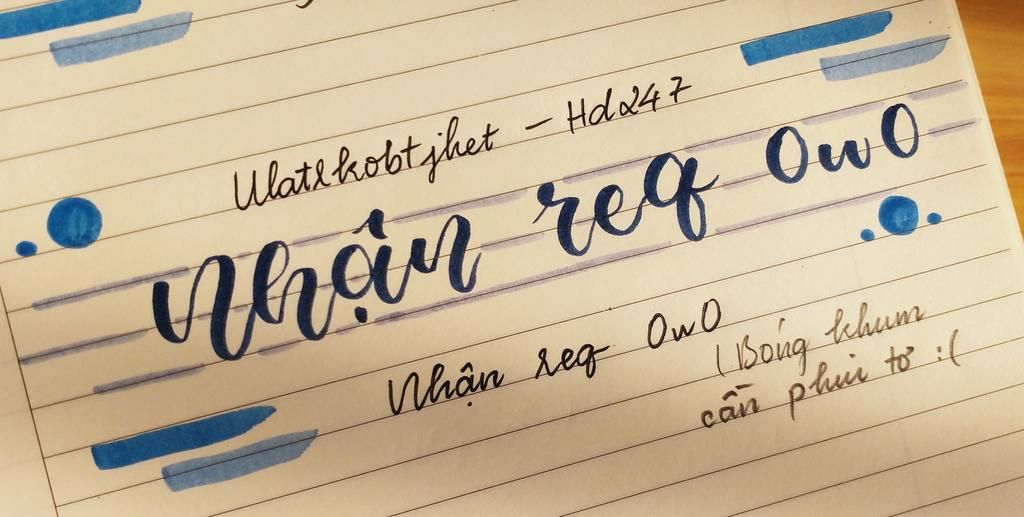 Ulatrkobtjhet - Hd247
Nhận req OwO
Nhận req OwO
(Bóng khum
cần phui tơ :(